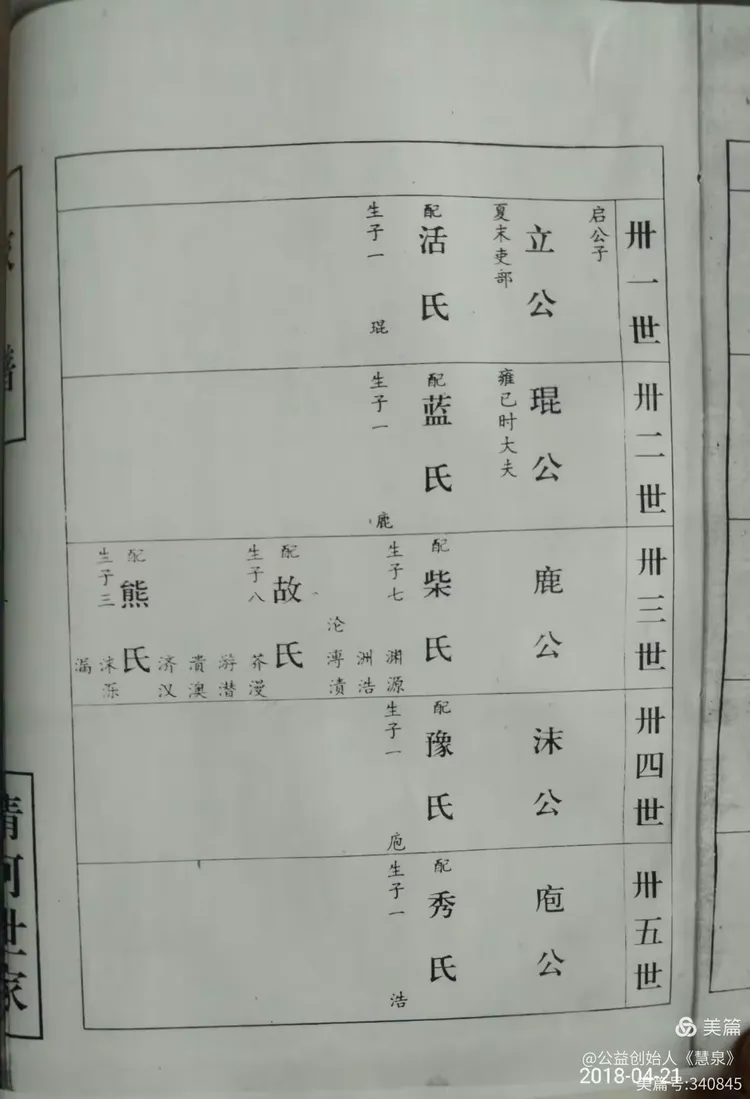 卅一世
启公子
立公
夏末吏部
配
活氏
生子一
琨
卅二世
琨公
雍已时大夫
配
蓝氏
生子一
鹿
卅三世
鹿公
配
柴氏
生子七
渊源
洲浩
漙渍
沦
配
故氏
生子八
芥漫
游潜
澳
济汉
配
熊氏
生子三
沫泺
漏
卅四世
沫公
配
豫氏
生子一
庖
卅五世
庖公
配
秀氏
生子一
浩
谱
清河世家
美篇
@公益创始人《慧泉》
2018-04-21
美篇号:340845